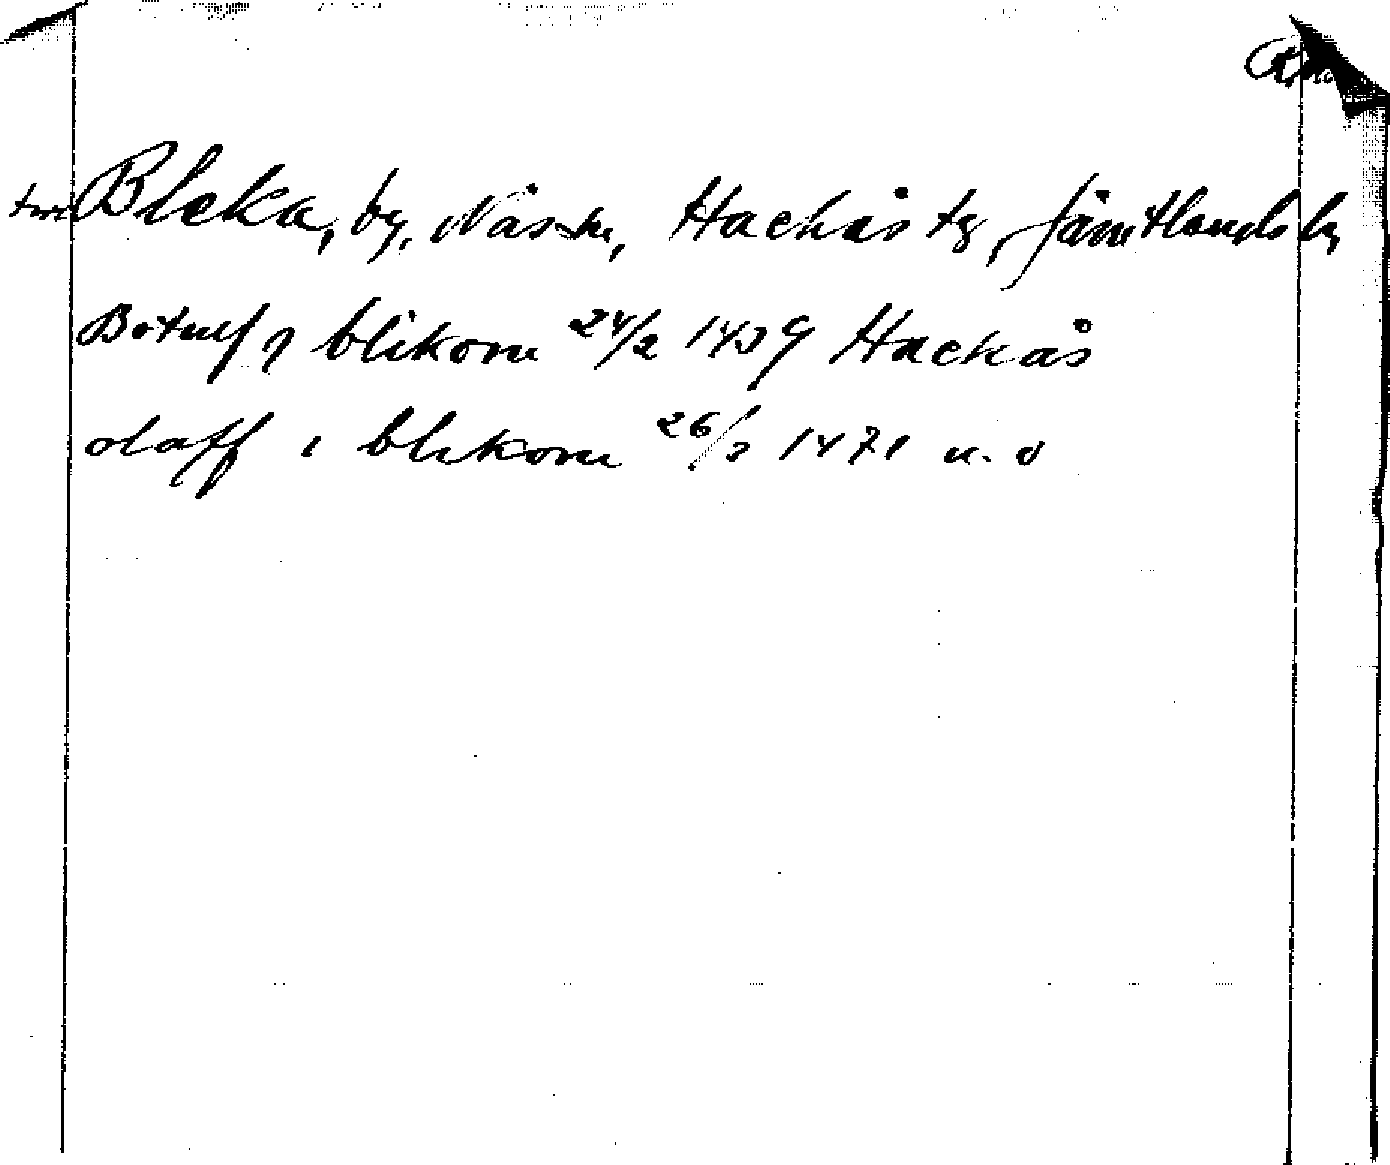 Bleka, by, Näs sn, Hackås tg, Jämtlands l.
Botulf j blikom 24/2 1439 Hackås
olaff i blikom 26/3 1471 u. o